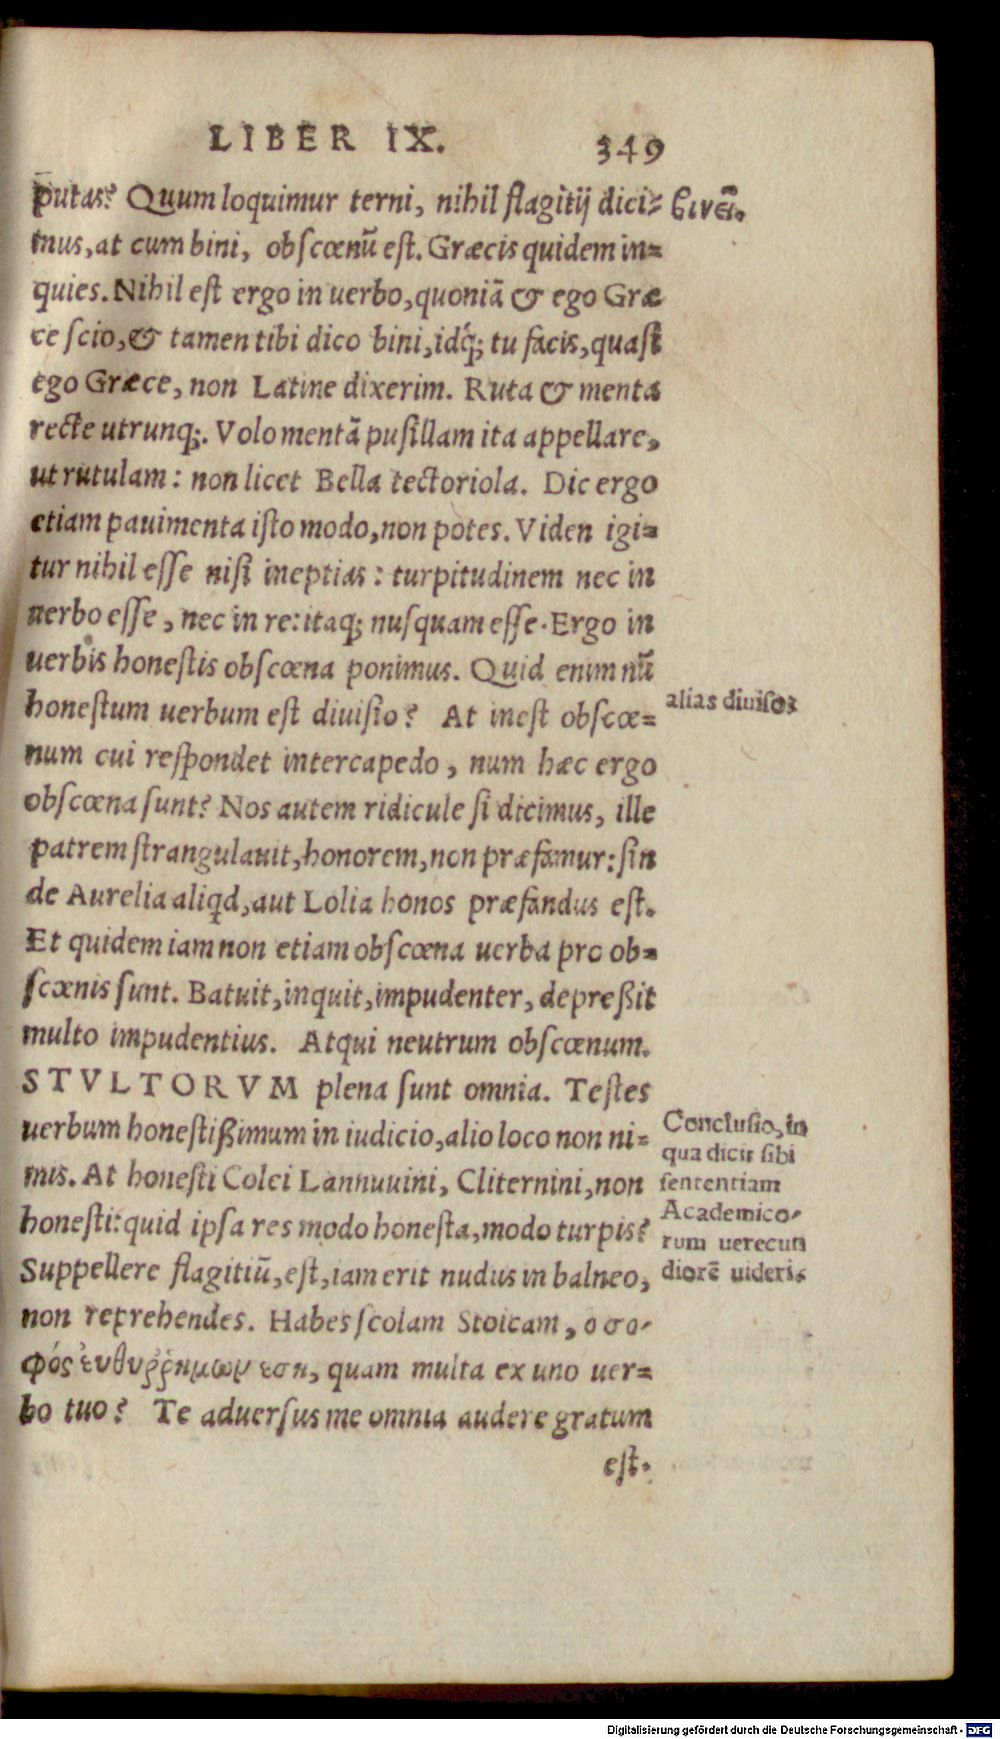 LIBER IX. 349
putas? Quum loquimur terni, nihil flagitij dici⸗
βινεῖ.
mus, at cum bini, obscœnū est. Græcis quidem in⸗
quies. Nihil est ergo in uerbo, quoniā & ego Græ
ce scio, & tamen tibi dico bini, idq́; tu facis, quasi
ego Græce, non Latine dixerim. Ruta & menta
recte utrunq;. Volo mentā pusillam ita appellare,
ut rutulam: non licet Bella tectoriola. Dic ergo
etiam pauimenta isto modo, non potes. Viden igi⸗
tur nihil esse nisi ineptias: turpitudinem nec in
uerbo esse, nec in re: itaq; nusquam esse. Ergo in
uerbis honestis obscœna ponimus. Quid enim nū
honestum uerbum est diuisio? At inest obscœ⸗
alias diuiso:
num cui respondet intercapedo, num hæc ergo
obscœna sunt? Nos autem ridicule si dicimus, ille
patrem strangulauit, honorem, non præfamur: sin
de Aurelia aliqd, aut Lolia honos præfandus est.
Et quidem iam non etiam obscœna uerba pro ob⸗
scœnis sunt. Batuit, inquit, impudenter, depreßit
multo impudentius. Atqui neutrum obscœnum.
STVLTORVM plena sunt omnia. Testes
uerbum honestißimum in iudicio, alio loco non ni⸗
mis. At honesti Colei Lannuuini, Cliternini, non
honesti: quid ipsa res modo honesta, modo turpis?
Suppellere flagitiū, est, iam erit nudus in balneo,
non reprehendes. Habes scolam Stoicam, ο σο-
φός ἐυθυῤῥημων εση, quam multa ex uno uer⸗
bo tuo? Te aduersus me omnia audere gratum
est.
Conclusio, in
qua dicit sibi
sententiam
Academico-
rum uerecun
diorē uideri.
Digitalisierung gefördert durch die Deutsche Forschungsgemeinschaft - DFG